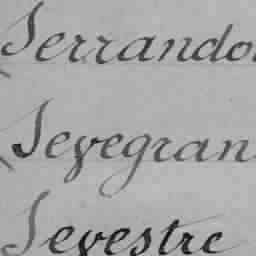 Serrando
Sevegran
Sevestre